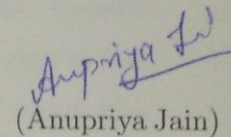 Anupriya
(Anupriya Jain)